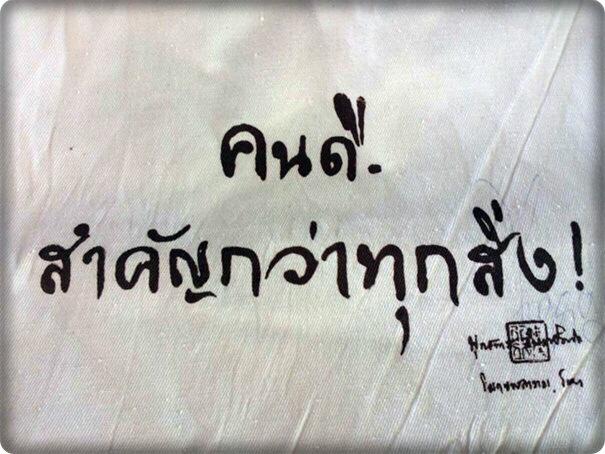 คนดี.
สำคัญกว่าทุกสิ่ง!